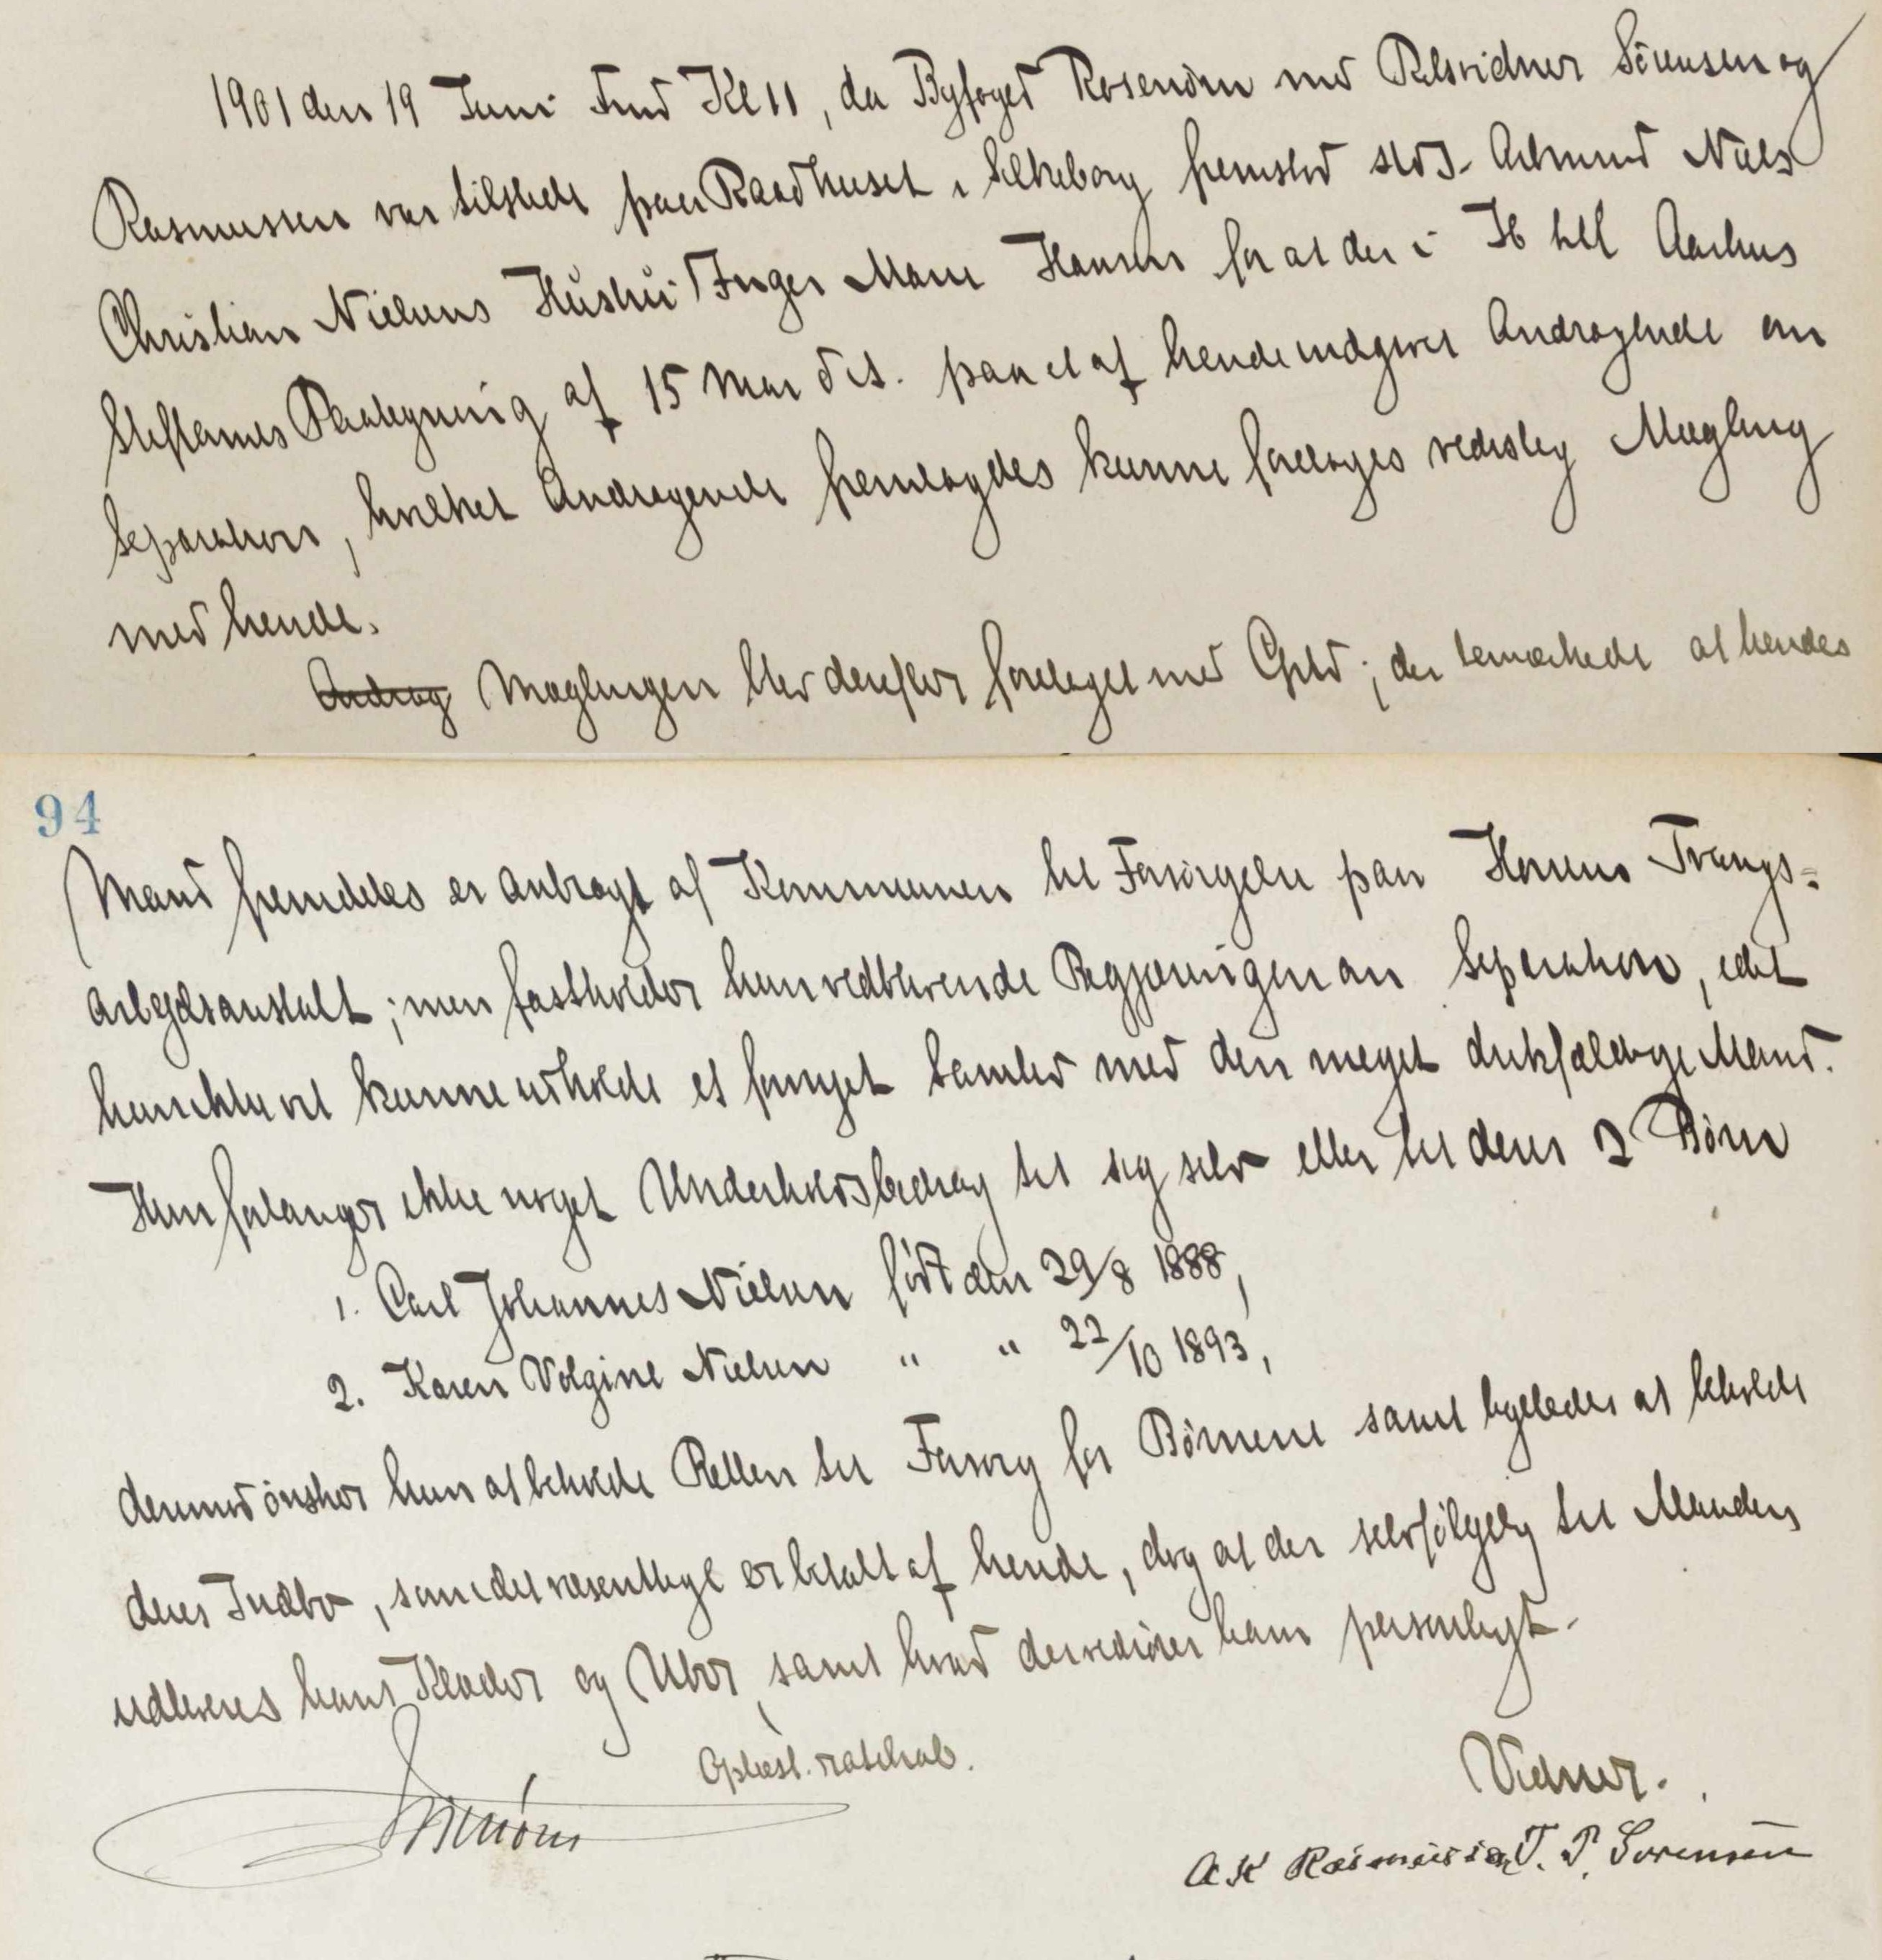 1901 den 19 Juni Fmd Kl 11, da Byfoged Rosenörn med Retsvidner Sörensen og
Rasmussen var tilstede paa Raadhuset i Silkeborg fremstod Arbmand Niels
Christian Nielsens Hustru Inger Marie Hansen for at der i H til Aarhus
Stiftamts Paategning af 15 Mar d.A. paa et af hende indgivet Andragende om
Separation, hvilket Andragende fremlagdes kunne foretages verdslig Mægling
med hende.
Andrag Mæglingen blev derefter foretaget med Cptd; der bemærkede at hendes
94
Mand fremdeles er anbragt af Kommunen til Forsörgelse paa Horsens Tvangs=
arbejdsanstalt; men fastholder hun vedblivende Begjæringen om Separation, idet
hun ikke vil kunne udholde et fornyet Samliv med den meget drikfældige Mand.
Hun forlanger ikke noget Underholdsbidrag til sig selv eller til deres 2 Börn
1. Carl Johannes Nielsen födt den 29/8 1888,
2. Karen Volgine Nielsen " " 22/10 1893,
derimod önsker hun at beholde Retten til Forsorg for Börnene samt ligeledes at beholde
deres Indbo, som det væsentligt er betalt af hende, dog at der selvfölgelig til Manden
udleveres hans Klæder og Uhr, samt hvad der vedrörer ham personligt.
Oplæst. ratihab.
Vidner.
Rosenörn
A K Rasmussen, T. P. Sörensen